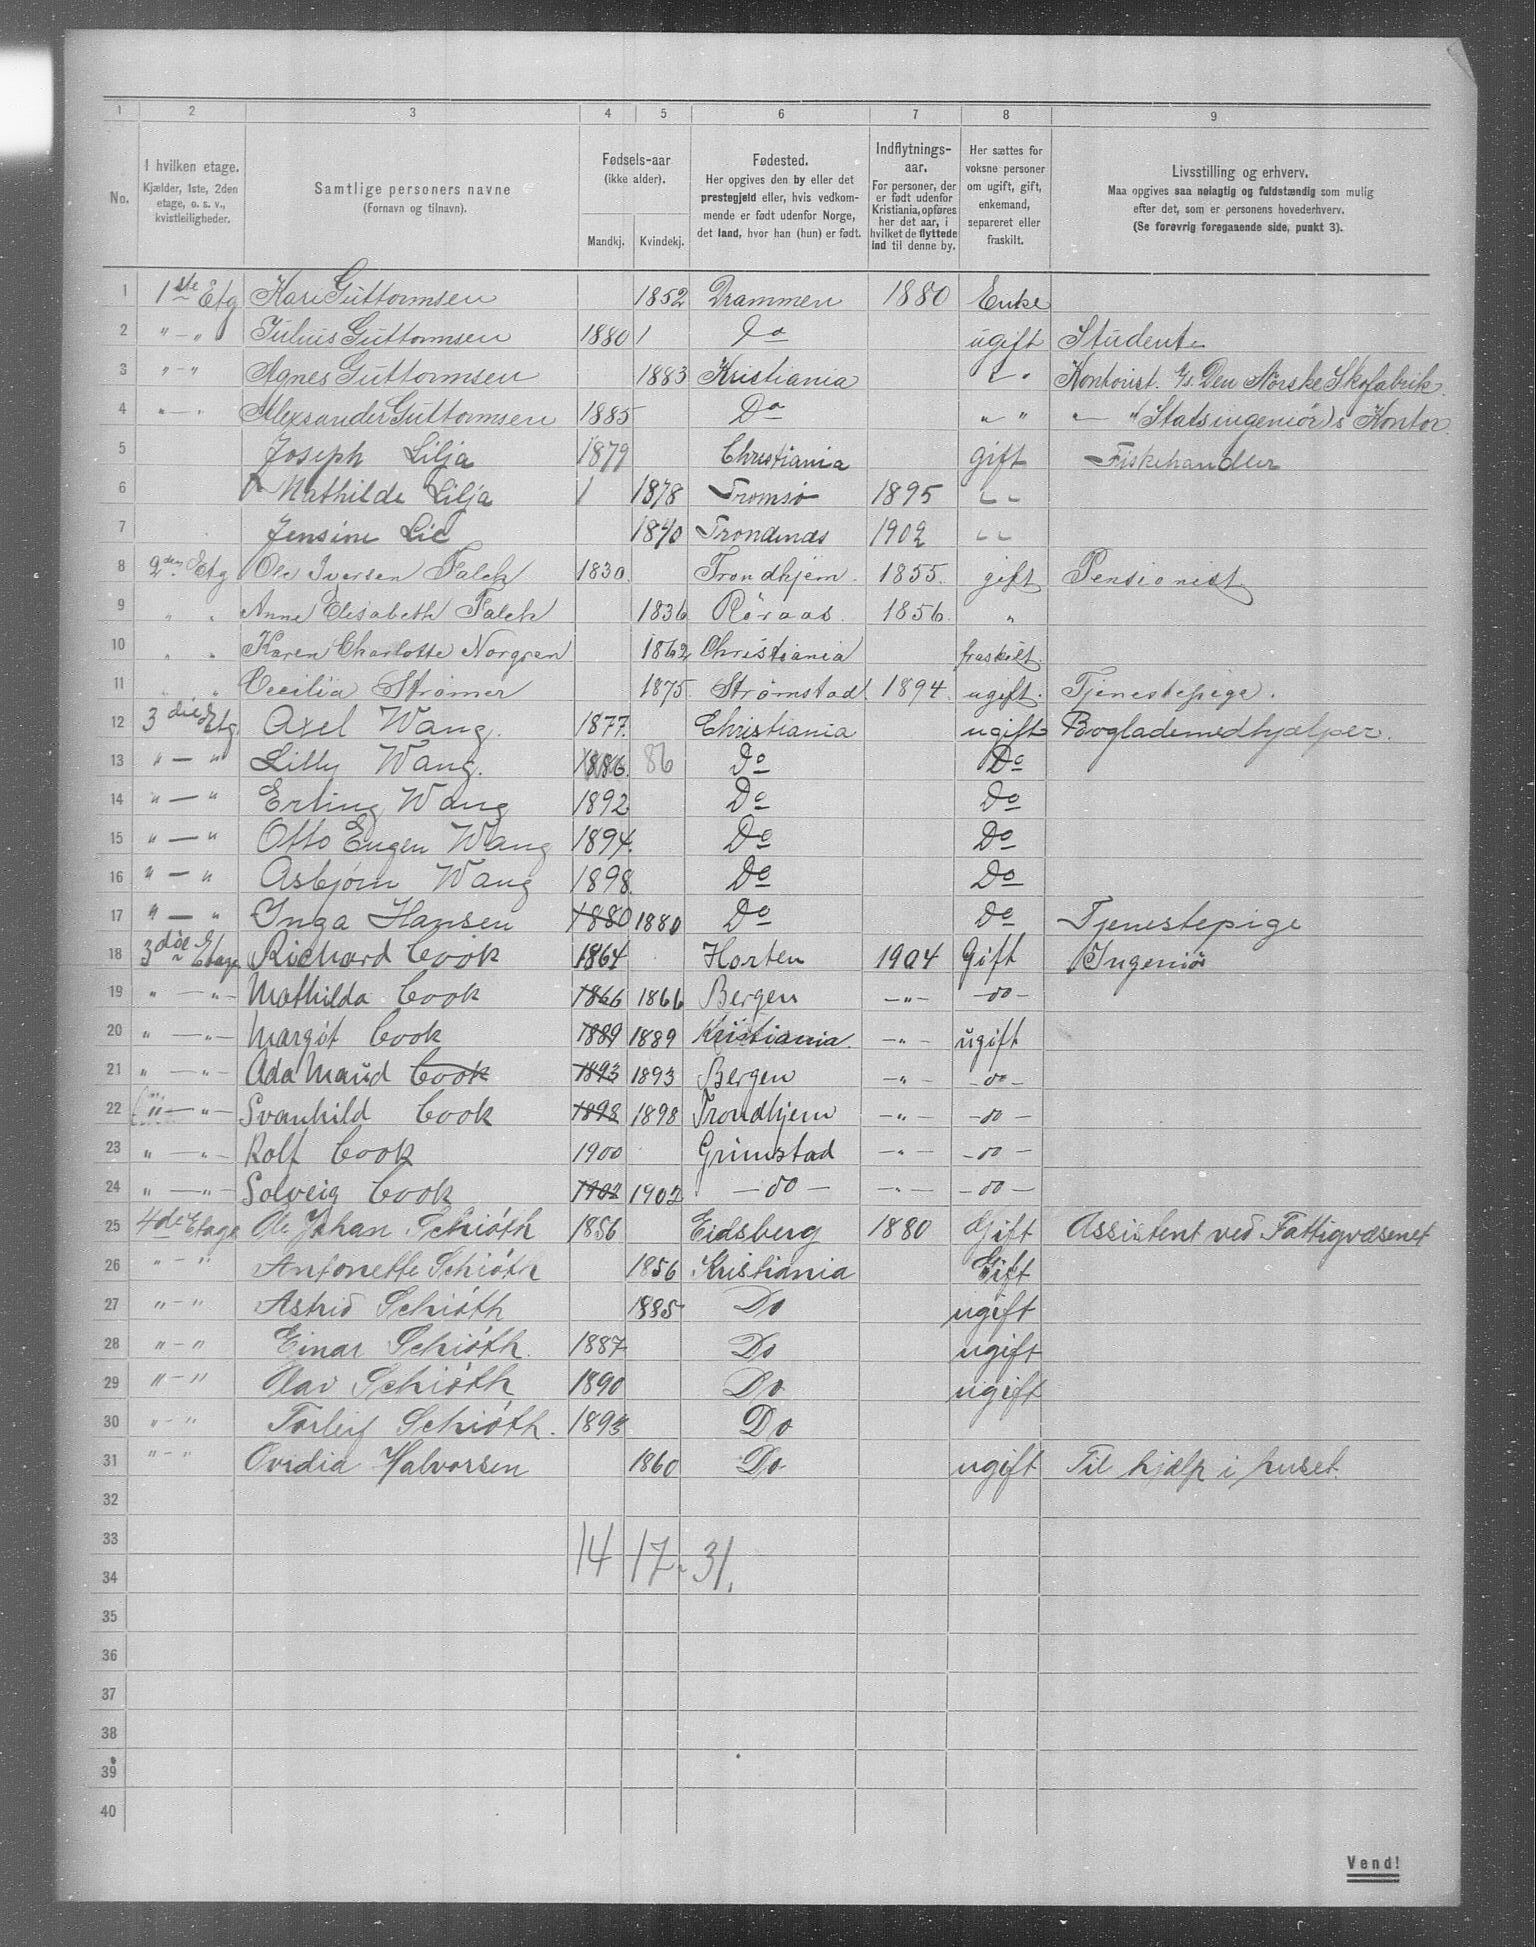 1 2 3 4 5 6 7 8 9
No. | I hvilken etage. Kjælder, 1ste, 2den etage, o. s. v., kvistleiligheder. | Samtlige personers navne (Fornavn og tilnavn). | Fødsels-aar (ikke alder). Mandkj. Kvindekj. | Fødested. Her opgives den by eller det prestegjeld eller, hvis vedkommende er født udenfor Norge, det land, hvor han (hun) er født. | Indflytnings-aar. For personer, der er født udenfor Kristiania, opføres her det aar, i hvilket de flyttede ind til denne by. | Her sættes for voksne personer om ugift, gift, enkemand, separeret eller fraskilt. | Livsstilling og erhverv. Maa opgives saa nøiagtig og fuldstændig som mulig efter det, som er personens hovederhverv. (Se forøvrig foregaaende side, punkt 3).
1 1ste Etg Kari Guttormsen 1852 Drammen 1880 Enke
2 " — " Julius Guttormsen 1880 1 Do ugift Student
3 " - " Agnes Guttormsen 1883 Kristiania " " Kontorist. A/s. Den Norske Skofabrik.
4 " — " Alexsander Guttormsen 1885 Do " " " — " (Statsingeniør)s Kontor
5 Joseph Lilja 1879 Christiania gift Fiskehandler
6 Mathilde Lilja 1 1878 Tromsø 1895 " "
7 Jensine Lie 1840 Trondenæs 1902 " "
8 2den Etg Ole Iversen Falck 1830. Trondhjem. 1855. gift Pensionist
9 " " Anne Elisabeth Falck 1836 Røraas. 1856. "
10 " " Karen Charlotte Norgren 1862 Christiania fraskilt.
11 " " Cecilia Strømer 1875. Strømstad. 1894. ugift. Tjenestepige.
12 3die Etg. Axel Wang. 1877. Christiania ugift Bogladémedhjælper.
13 " — " Lilly Wang. 1886. 86 Do Do
14 " — " Erling Wang 1892 Do Do
15 " — " Otto Eugen Wang 1894. Do Do
16 " — " Asbjørn Wang 1898. Do Do
17 " — " Inga Hansen 1880 1880 Do Do Tjenestepige
18 3die Etage Richard Cook 1864 Horten 1904 Gift Ingeniør
19 " — " — Mathilda Cook 1866 1866 Bergen — " — — do —
20 " — " — Margit Cook 1889 1889 Kristiania. — " — ugift
21 " — " — Ada Maud Cook 1893 1893 Bergen — " — — do —
22 " — " — Svanhild Cook 1898 1898 Trondhjem — " — — do —
23 " — " — Rolf Cook 1900 Grimstad — " — — do —
24 " — " — Solveig Cook 1902 1902 — do — — " — — do —
25 4de Etage Ole Johan Schiøth 1856 Eidsberg 1880 Gift Assistent ved Fattigvæsenet
26 " - " Antonette Schiøth 1856 Kristiania Gift
27 " - " Astrid Schiøth 1885 Do ugift
28 " - " Einar Schiøth. 1887 Do ugift
29 " - " Olav Schiøth 1890 Do ugift
30 " - " Torleif Schiøth. 1893 Do
31 " - " Ovidia Halvorsen 1860 Do ugift Til hjælp i huset.
32
33
14 17 - 31.
34
35
36
37
38
39
40
Vend!